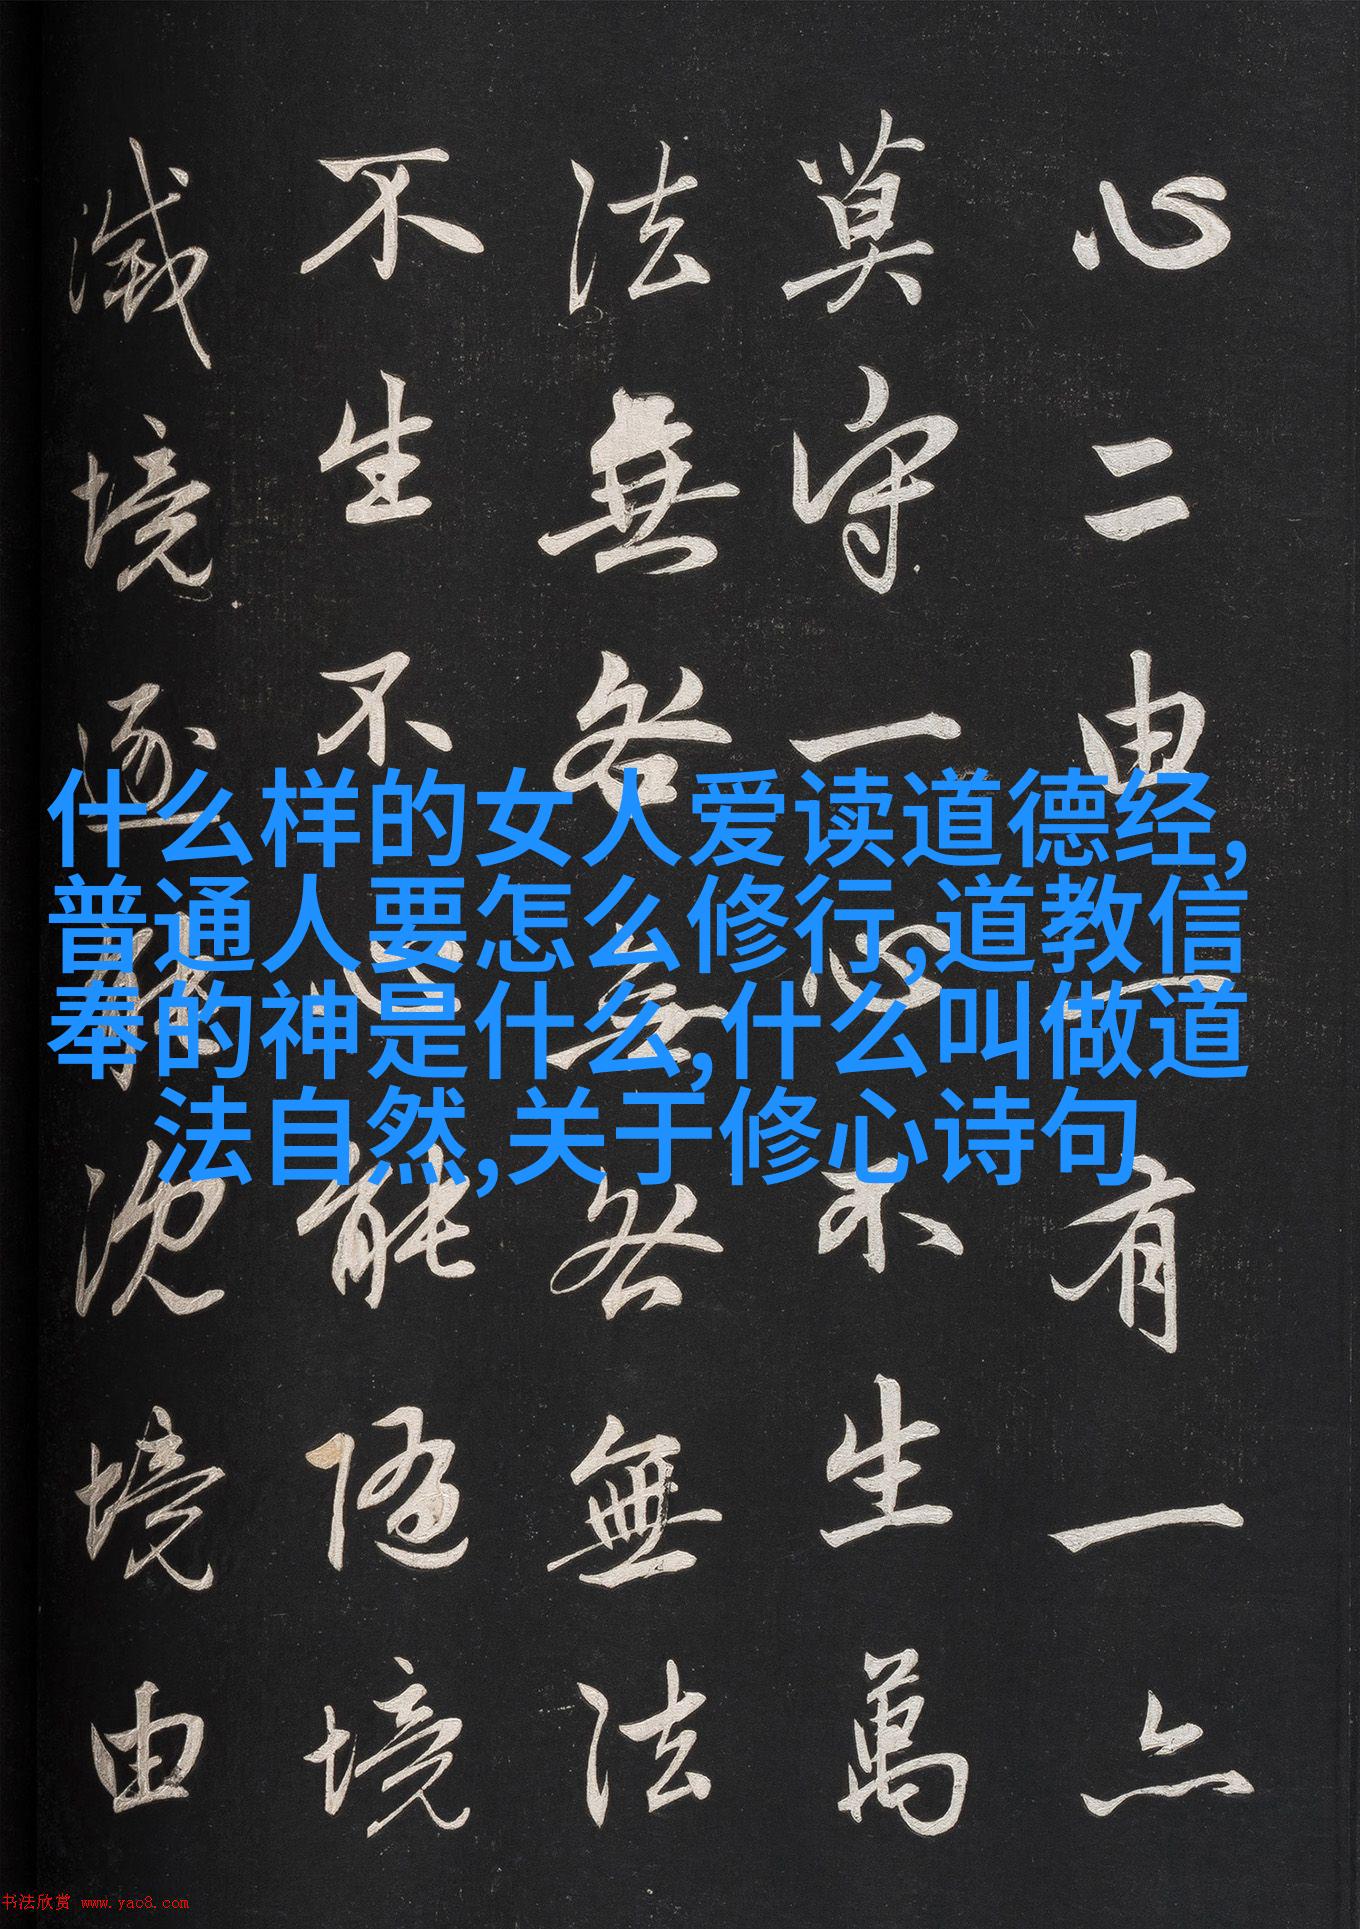 心二由一有一亦
莫守一心不生萬
法無咎無咎無法
不生不心能隨境
滅境逐能沈境由
什么样的女人爱读道德经,
普通人要怎么修行,道教信
奉的神是什么,什么叫做道
法自然,关于修心诗句
书法欣赏 www.yac8.com